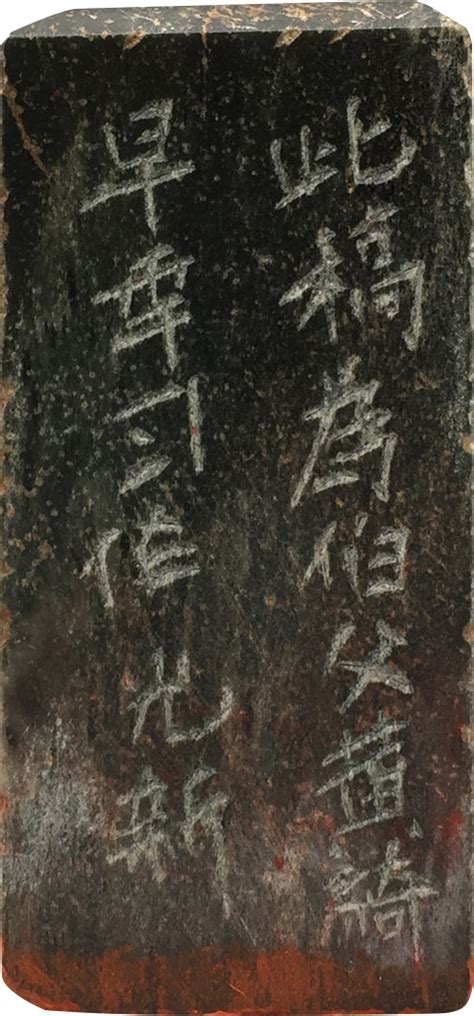 此稿為伯父黄綺
早年习作光新